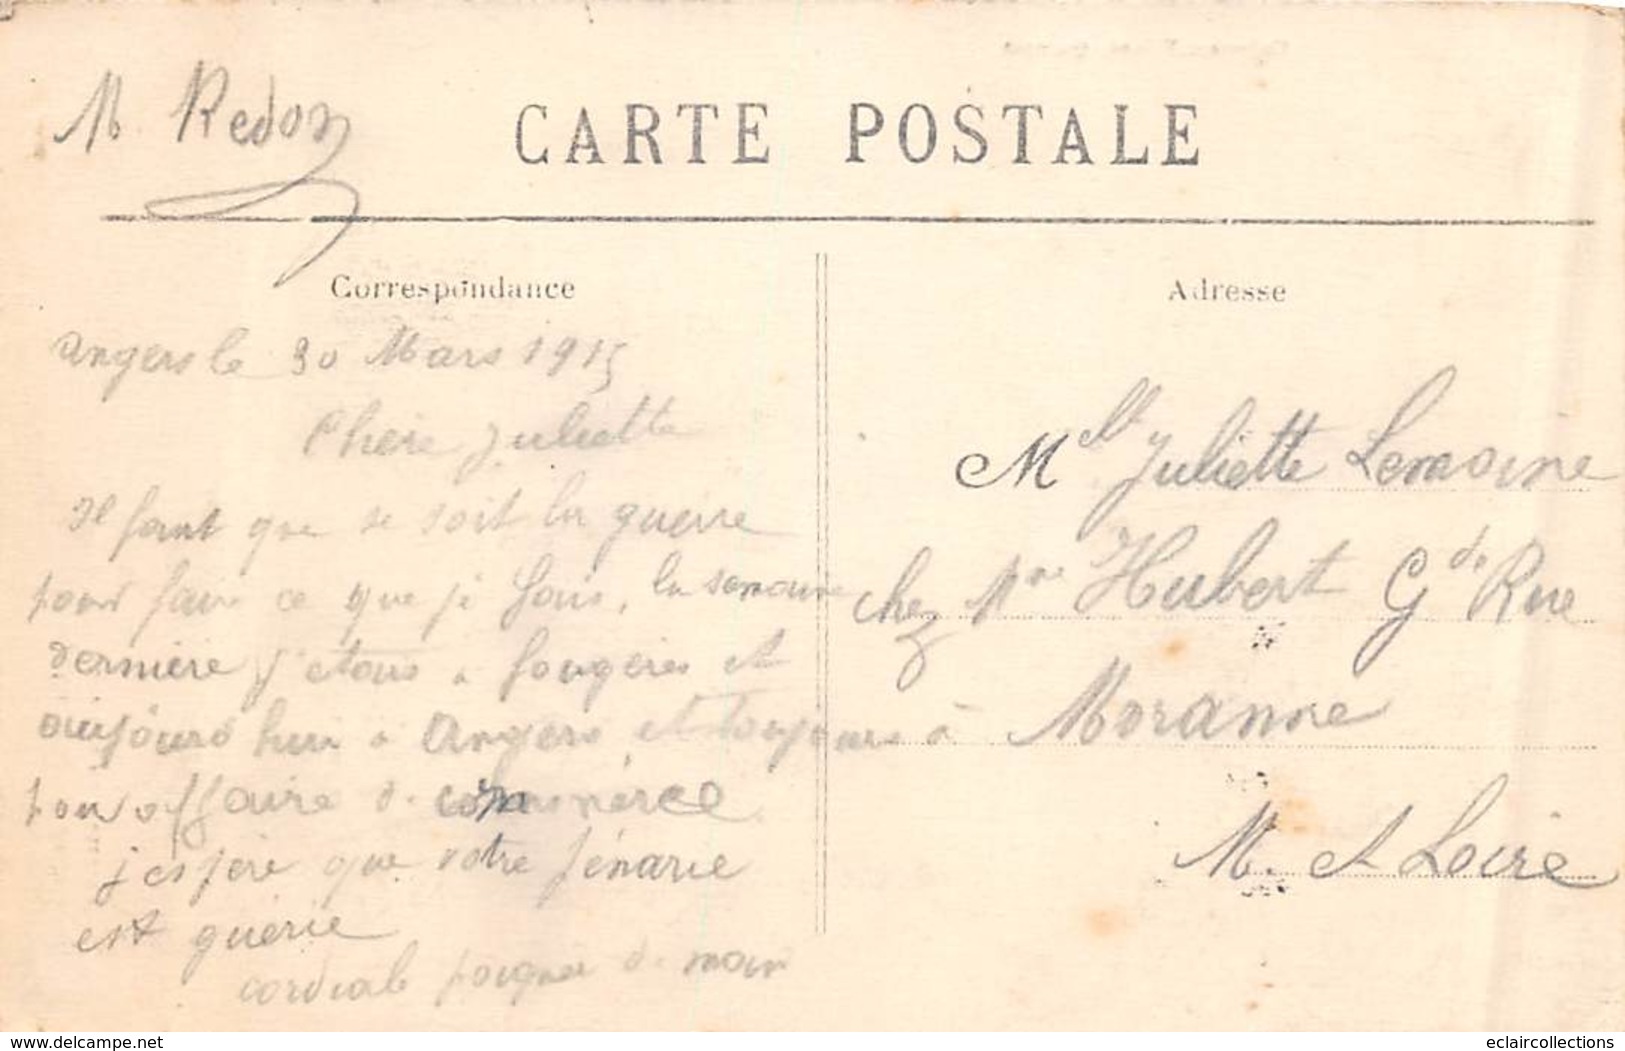 M. Redon
CARTE POSTALE
Correspondance
Angers le 30 Mars 1915
Chère Juliette
Il faut que se soit la guerre
pour faire ce que je fais, la semaine
dernière j'etais a fougères et
aujourd hui a Angers et toujours
pour affaire de commerce
j'espère que votre
est guérie
cordiale poignée de main
Adresse
Melle Juliette Lemoine
chez Mme Hubert Gde Rue
à Moranne
M. et Loire
www.delcampe.net
eclaircollections